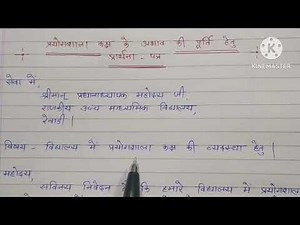 प्रयोगशाला कक्ष के अभाव की पूर्ति हेतु
प्रार्थना - पत्र
सेवा में,
श्रीमान् प्रधानाध्यापक महोदय जी
राजकीय उच्च माध्यमिक विद्यालय,
रेवाड़ी |
विषय - विद्यालय में प्रयोगशाला कक्ष की व्यवस्था हेतु |
महोदय,
सविनय निवेदन है कि हमारे विद्यालय में प्रयोगशाला
KINEMASTER